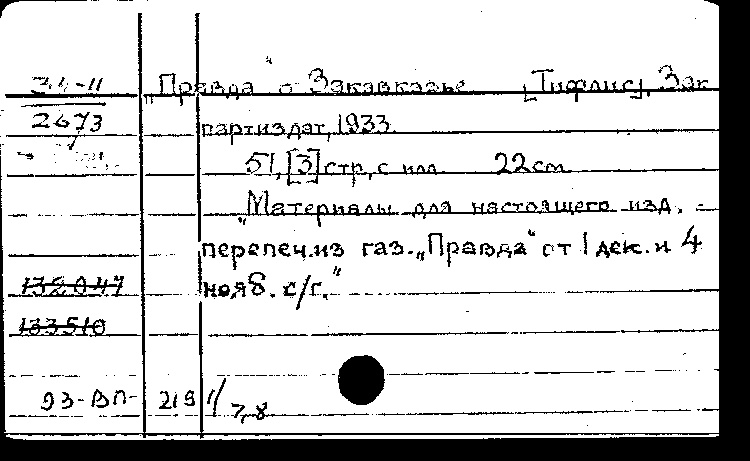 34-11 „Правда" о Закавказье [Тифлис], Зак
2673 партиздат, 1933
51, [3] стр, с илл. 22 см
„Материалы для настоящего изд. -
перепеч. из газ. „Правда" от 1 дек. и 4
132047 нояб. с/г."
133510
93-ВП- 219 1/7,8